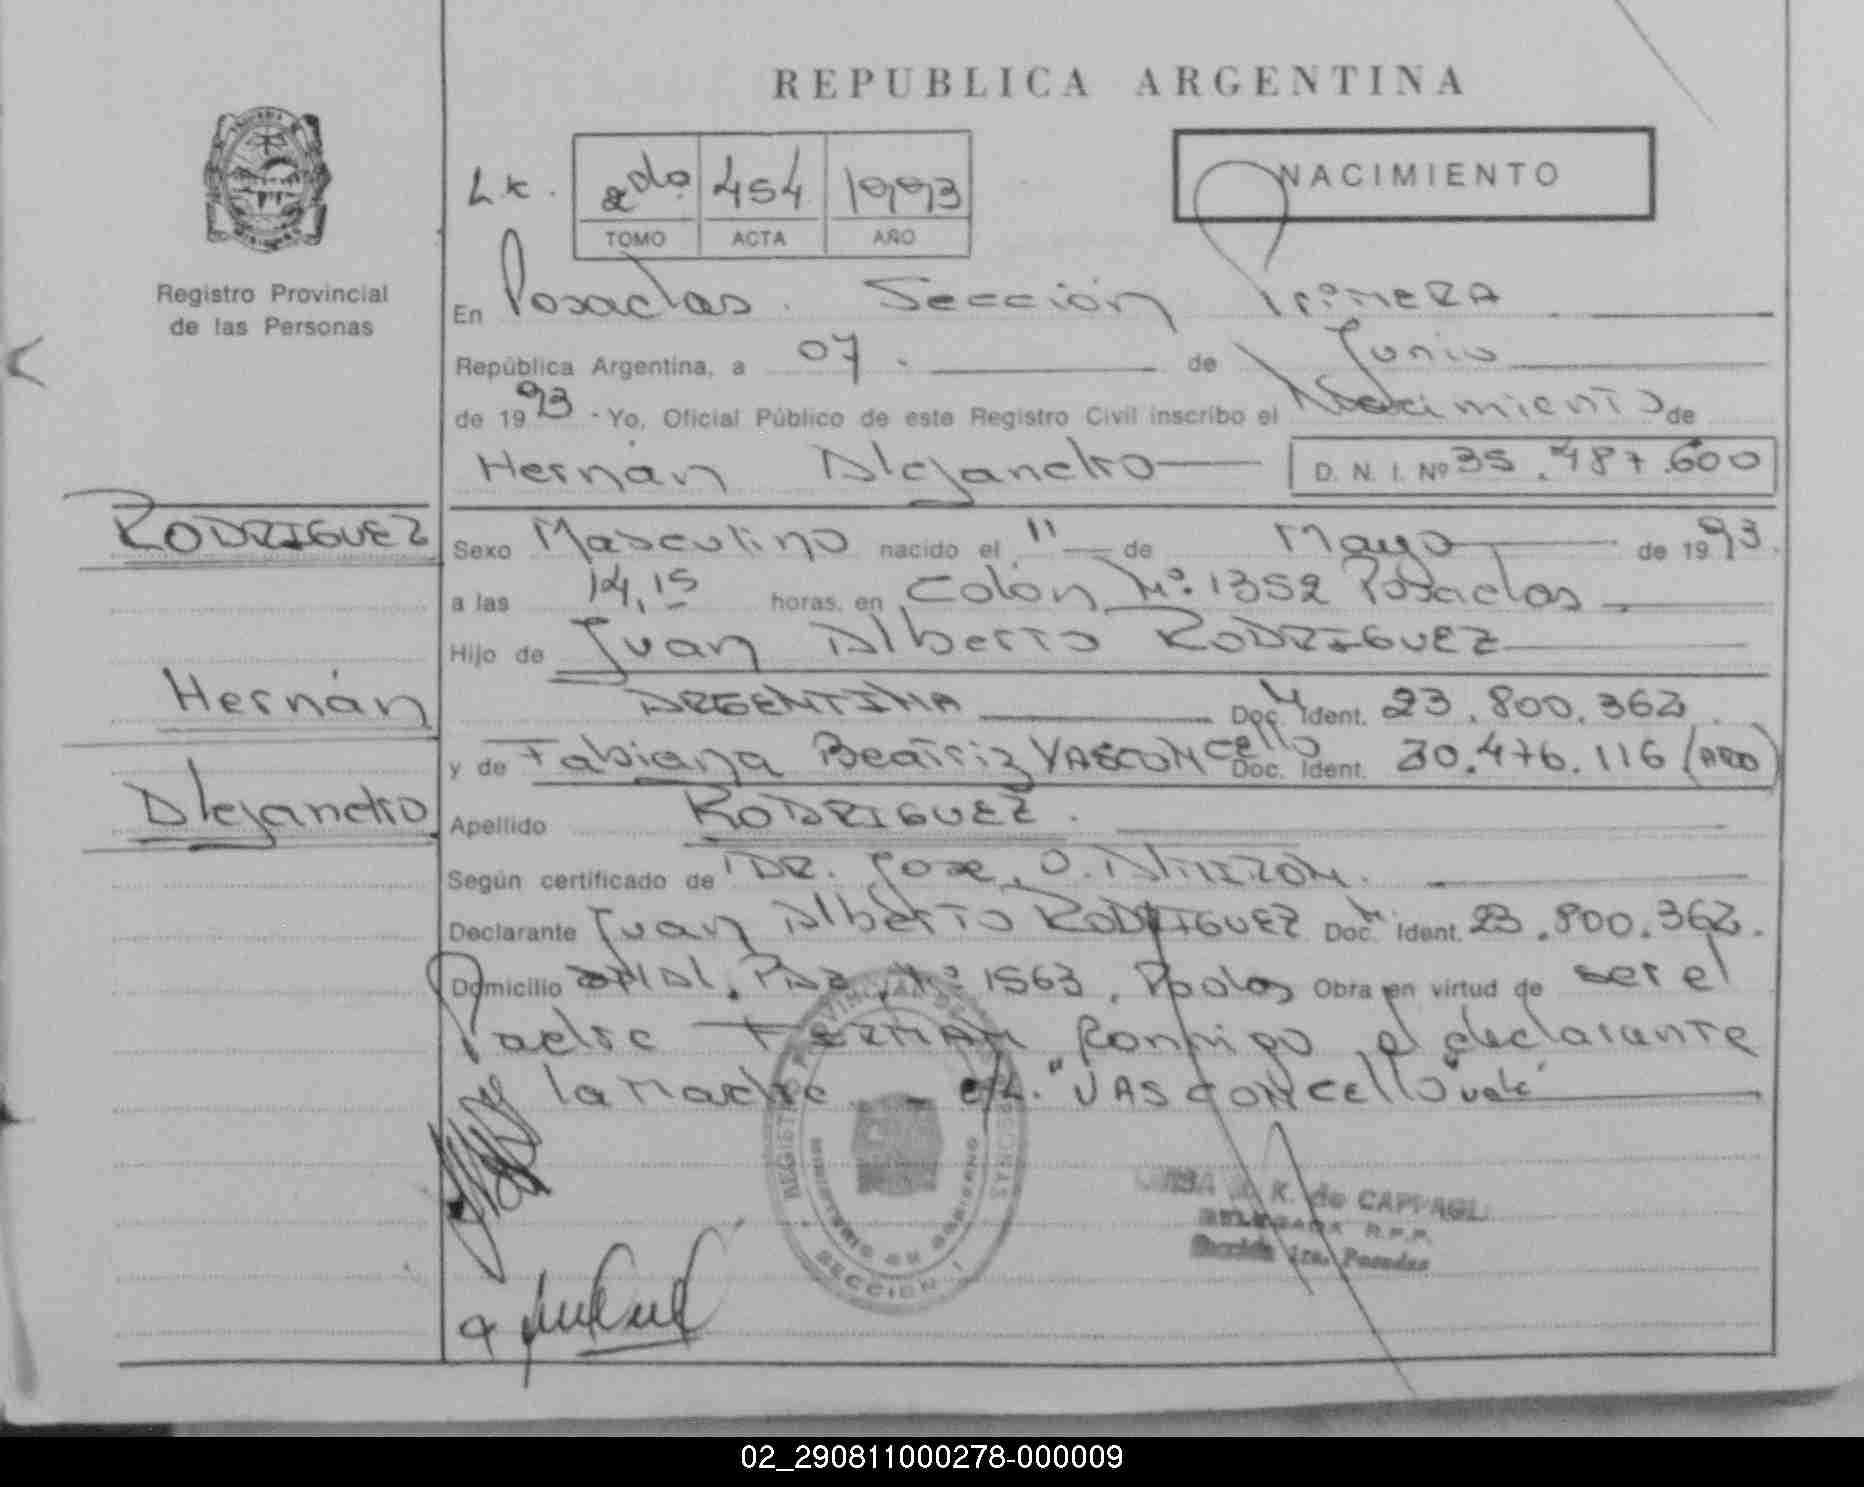 REPUBLICA ARGENTINA
NACIMIENTO
2do 454 1993
TOMO ACTA AÑO
Registro Provincial
de las Personas
En Posadas. Sección Primera
República Argentina, a 07. de Junio
de 1993 - Yo, Oficial Público de este Registro Civil inscribo el Nacimiento de
Hernán Alejandro D. N. I. Nº 35.487.600
RODRIGUEZ
Hernán
Alejandro
Sexo Masculino nacido el 11 de Mayo de 1993.
a las 14,15 horas, en Colón Nº 1352 Posadas
Hijo de Juan Alberto RODRIGUEZ
ARGENTINA Doc. Ident. 23.800.362
y de Fabiana Beatriz VASCONcello Doc. Ident. 30.476.116
Apellido RODRIGUEZ.
Según certificado de DR. Jose O.
Declarante Juan Alberto RODRIGUEZ Doc. Ident. 23.800.362.
Domicilio Nº 1563, Obra en virtud de ser el
Padre FIRMAN Conmigo el declarante
y la Madre. - e/L. "VASCONCello" vale
REGISTRO PROVINCIAL DE LAS PERSONAS
MINISTERIO DE GOBIERNO
SECCION 1
K. de
DELEGADA R.P.P.
Sección 1ra. Posadas
02_290811000278-000009